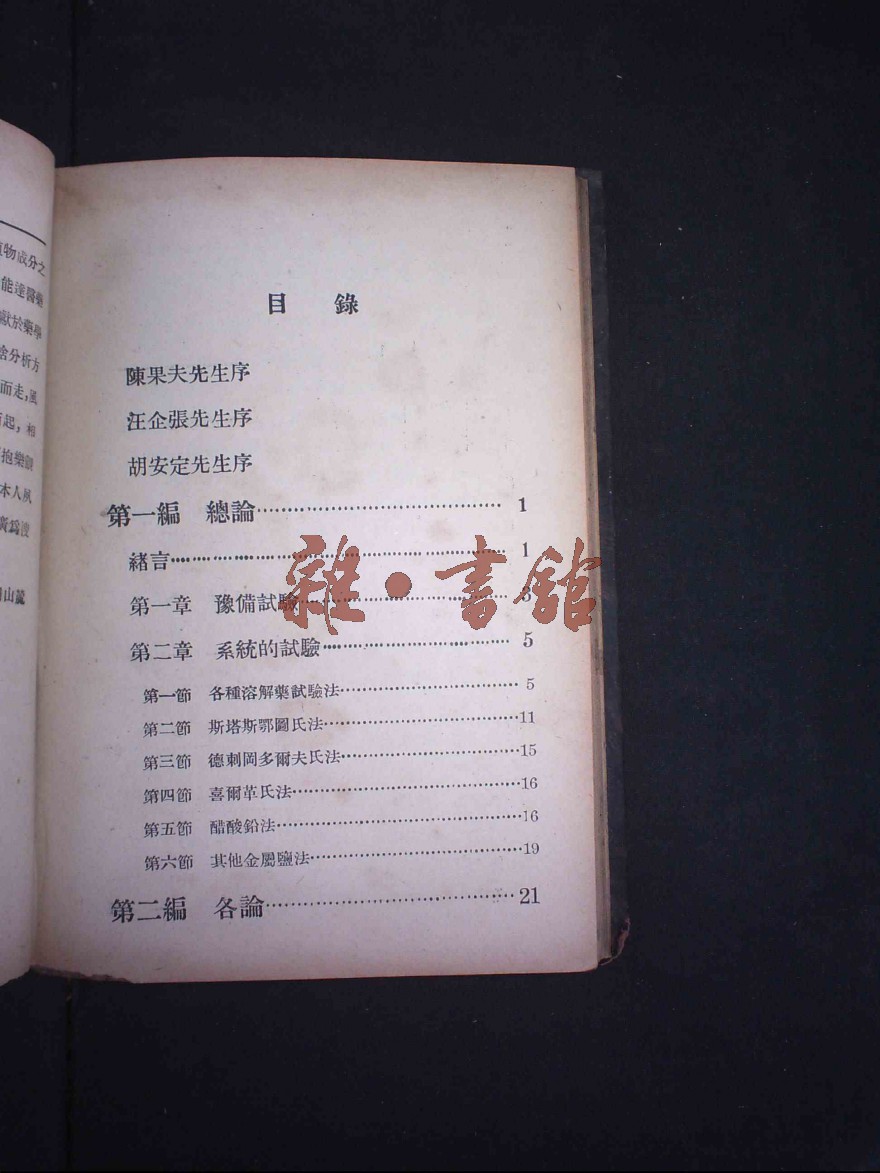 目 錄
陳果夫先生序
汪企張先生序
胡安定先生序
第一編 總論 1
緒言 1
第一章 豫備試驗 3
第二章 系統的試驗 5
第一節 各種溶解藥試驗法 5
第二節 斯塔斯鄂圖氏法 11
第三節 德刺岡多爾夫氏法 15
第四節 喜爾革氏法 16
第五節 醋酸鉛法 16
第六節 其他金屬鹽法 19
第二編 各論 21
雜·書館
物成分之
能達醫藥
獻於藥學
舍分析方
而走,風
起,相
抱樂觀
本人夙
廣爲
山